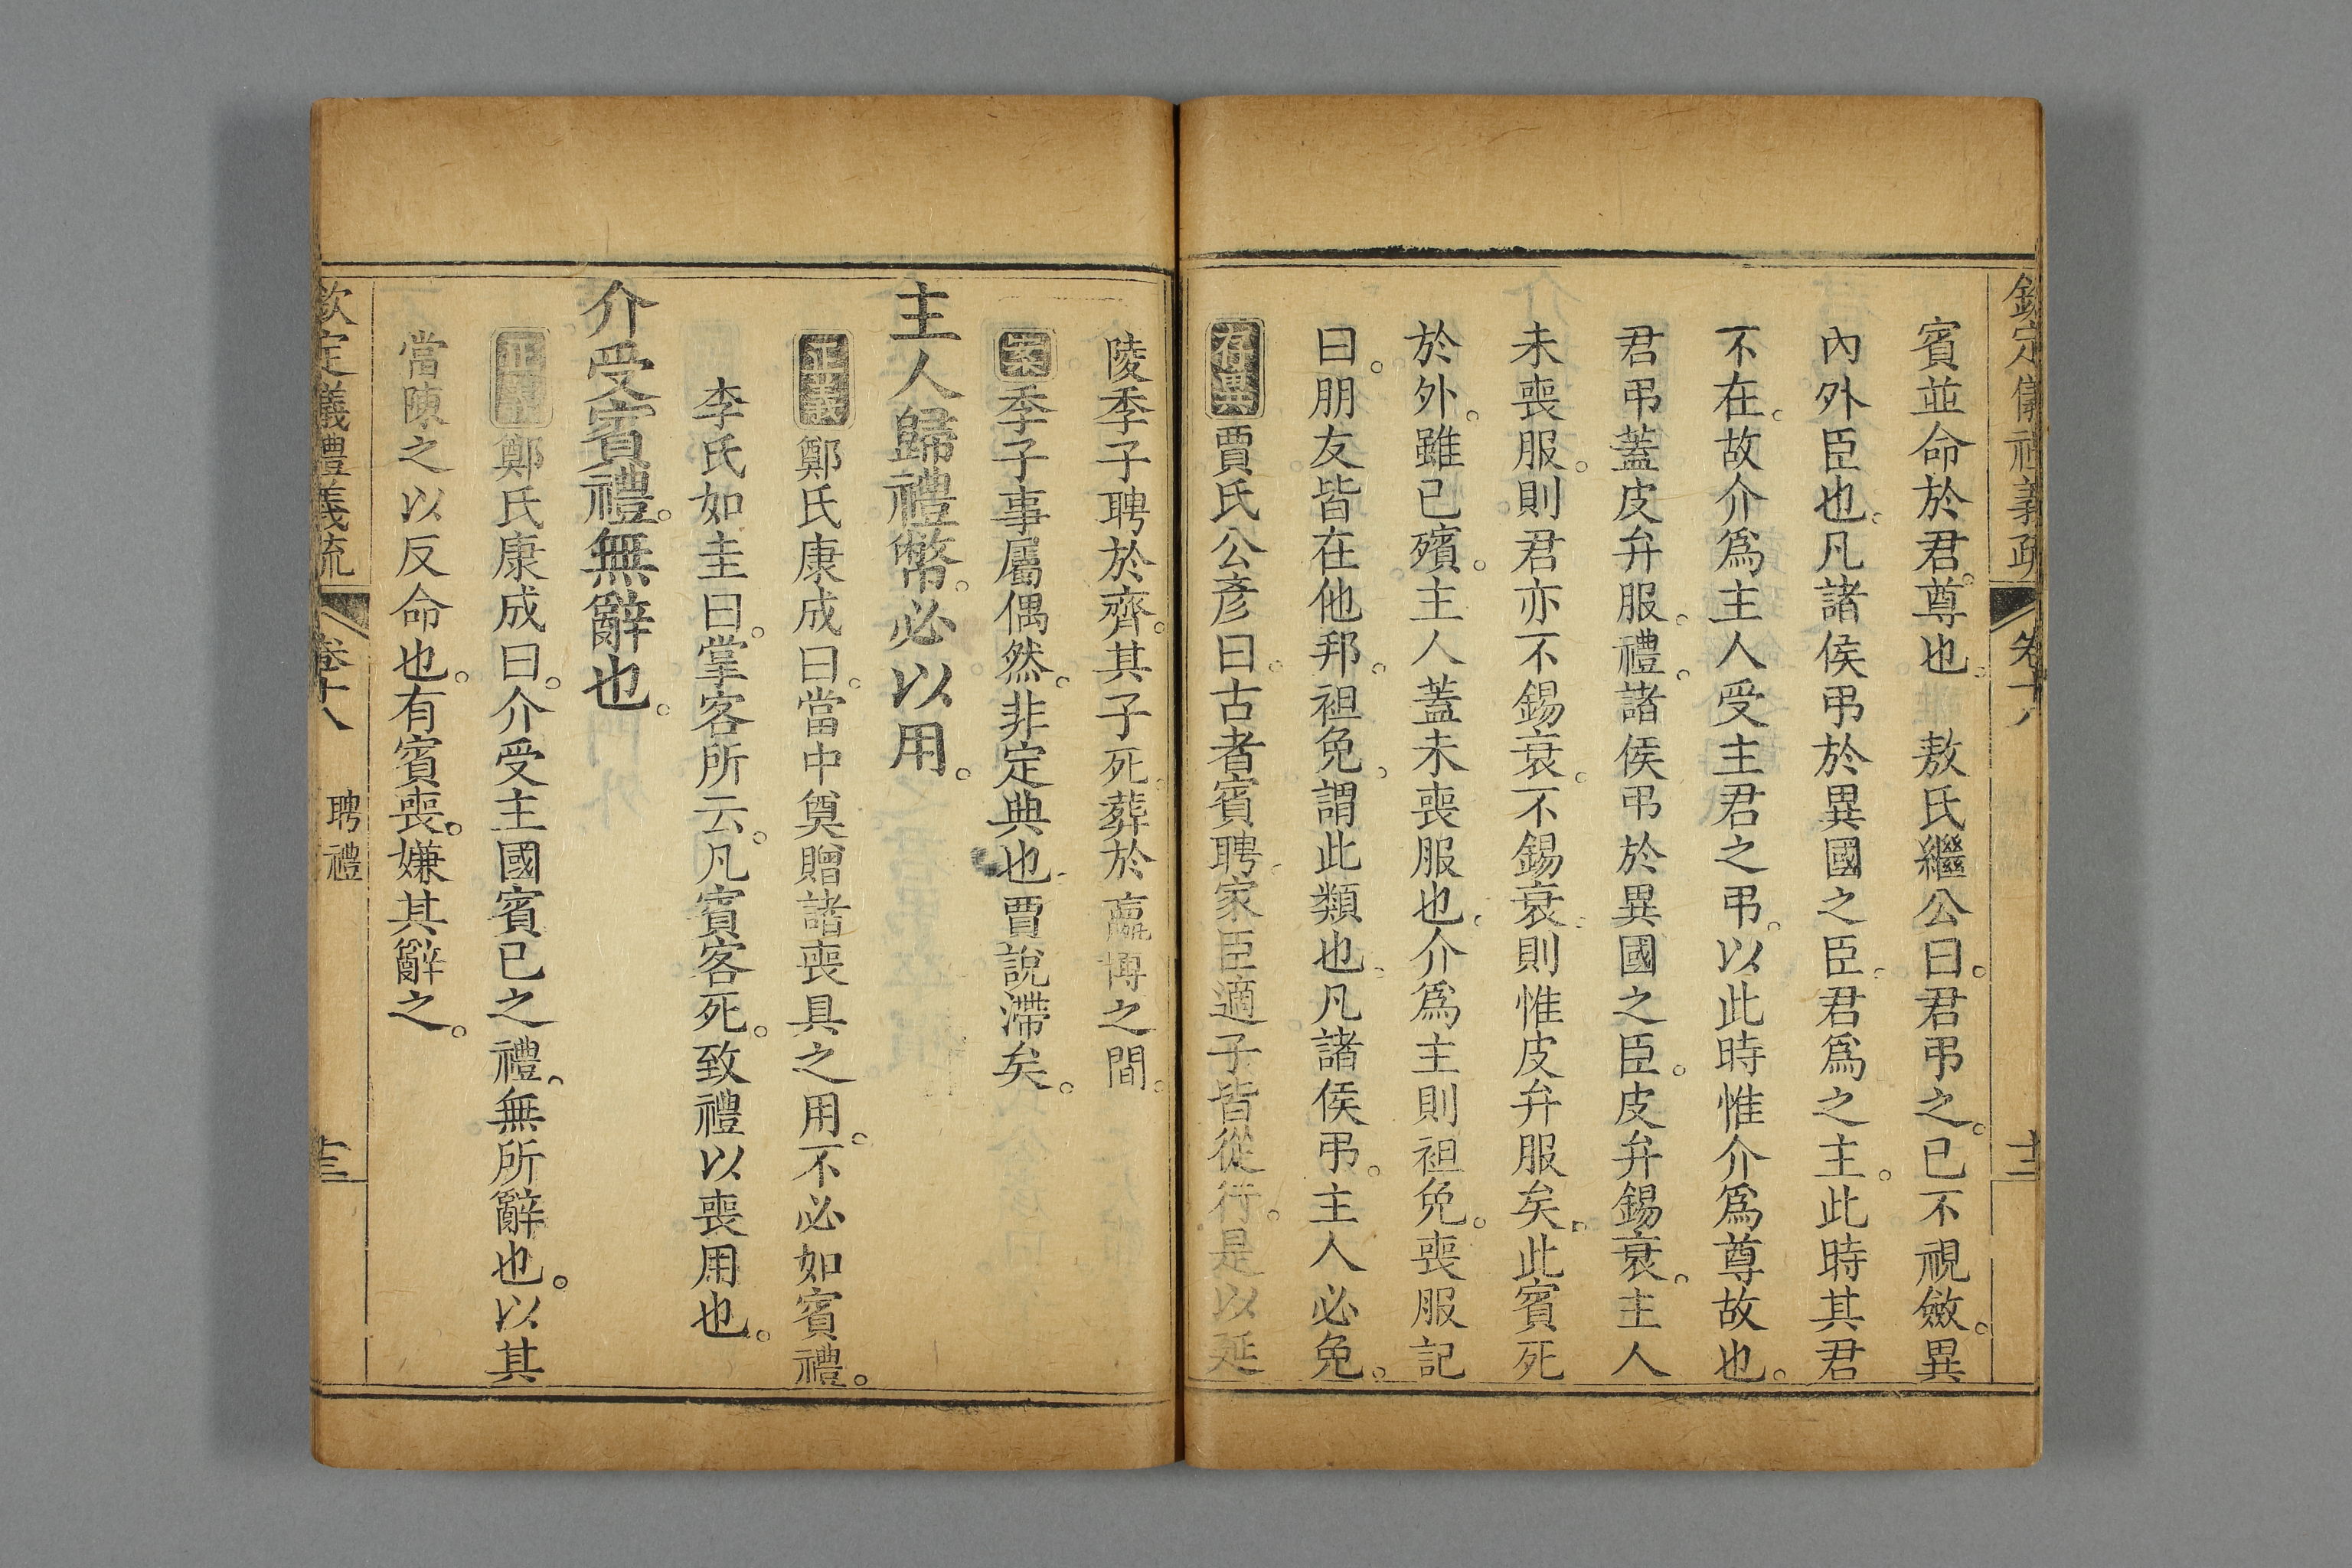 欽定儀禮義疏 卷十八 十三
賓並命於君。尊也。 敖氏繼公曰。君弔之。已不視斂。異
內外臣也。凡諸侯弔於異國之臣。君爲之主。此時其君
不在。故介爲主人受主君之弔。以此時惟介爲尊故也。
君弔蓋皮弁服。禮。諸侯弔於異國之臣。皮弁錫衰。主人
未喪服。則君亦不錫衰。不錫衰。則惟皮弁服矣。此賓死
於外。雖已殯。主人蓋未喪服也。介爲主則袒免。喪服記
曰。朋友皆在他邦。袒免。謂此類也。凡諸侯弔。主人必免。
存異賈氏公彥曰。古者賓聘。家臣適子皆從行。是以延
陵季子聘於齊。其子死。葬於嬴博之間。
案季子事屬偶然。非定典也。賈說滯矣。
主人歸禮幣。必以用。
正義鄭氏康成曰。當中奠贈諸喪具之用。不必如賓禮。
李氏如圭曰。掌客所云。凡賓客死。致禮以喪用也。
介受賓禮。無辭也。
正義鄭氏康成曰。介受主國賓已之禮。無所辭也。以其
當陳之以反命也。有賓喪。嫌其辭之。
欽定儀禮義疏 卷十八 聘禮 十三